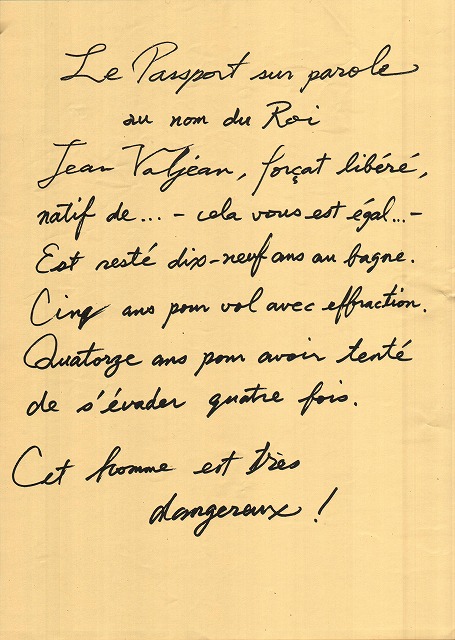 Le Passport sur parole
au nom du Roi
Jean Valjéan, forçat libéré,
natif de... - cela vous est égal...-
Est resté dix-neuf ans au bagne.
Cinq ans pour vol avec effraction.
Quatorze ans pour avoir tenté
de s'évader quatre fois.
Cet homme est très
dangereux !